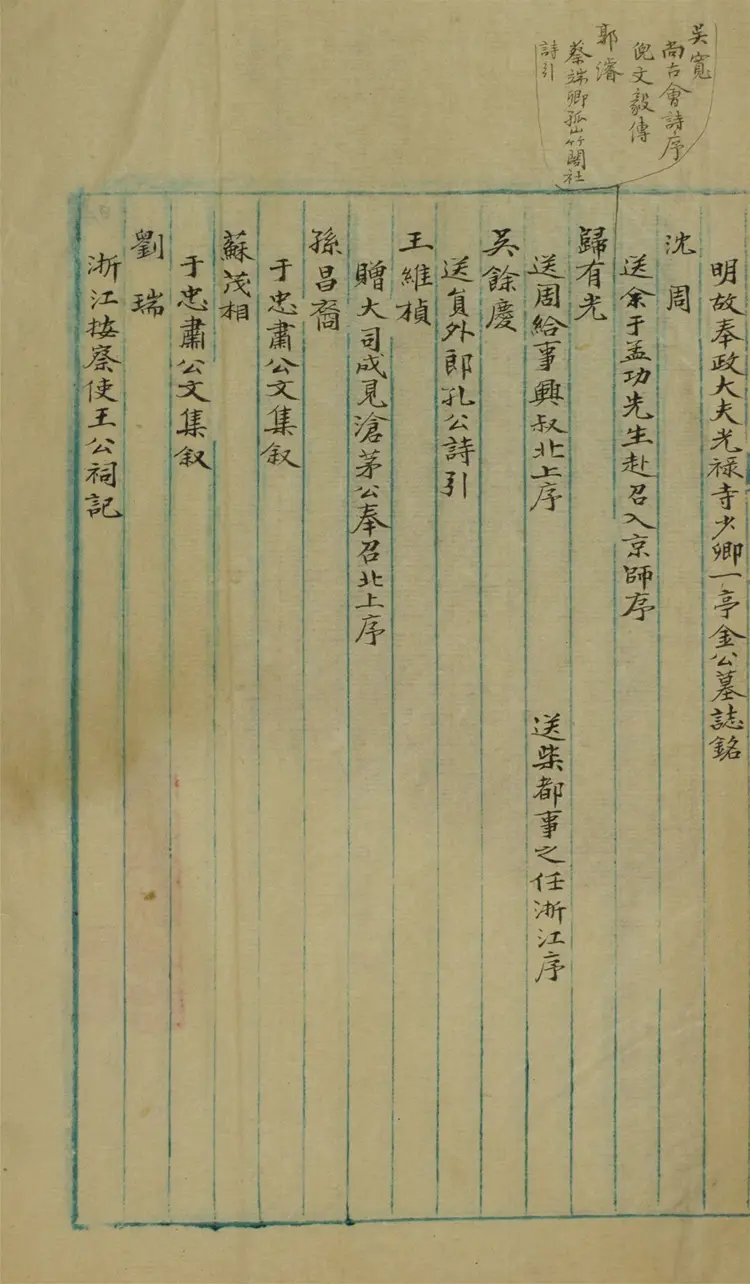 吳寬
尚古會詩序
倪文毅傳
郭濬
蔡端卿孤山竹閣社
詩引
明故奉政大夫光祿寺少卿一亭金公墓誌銘
沈周
送余于孟功先生赴召入京師序
歸有光
送周給事興叔北上序 送柴都事之任浙江序
吳餘慶
送員外郎孔公詩引
王維楨
贈大司成見滄茅公奉召北上序
孫昌裔
于忠肅公文集叙
蘇茂相
于忠肅公文集叙
劉瑞
浙江按察使王公祠記